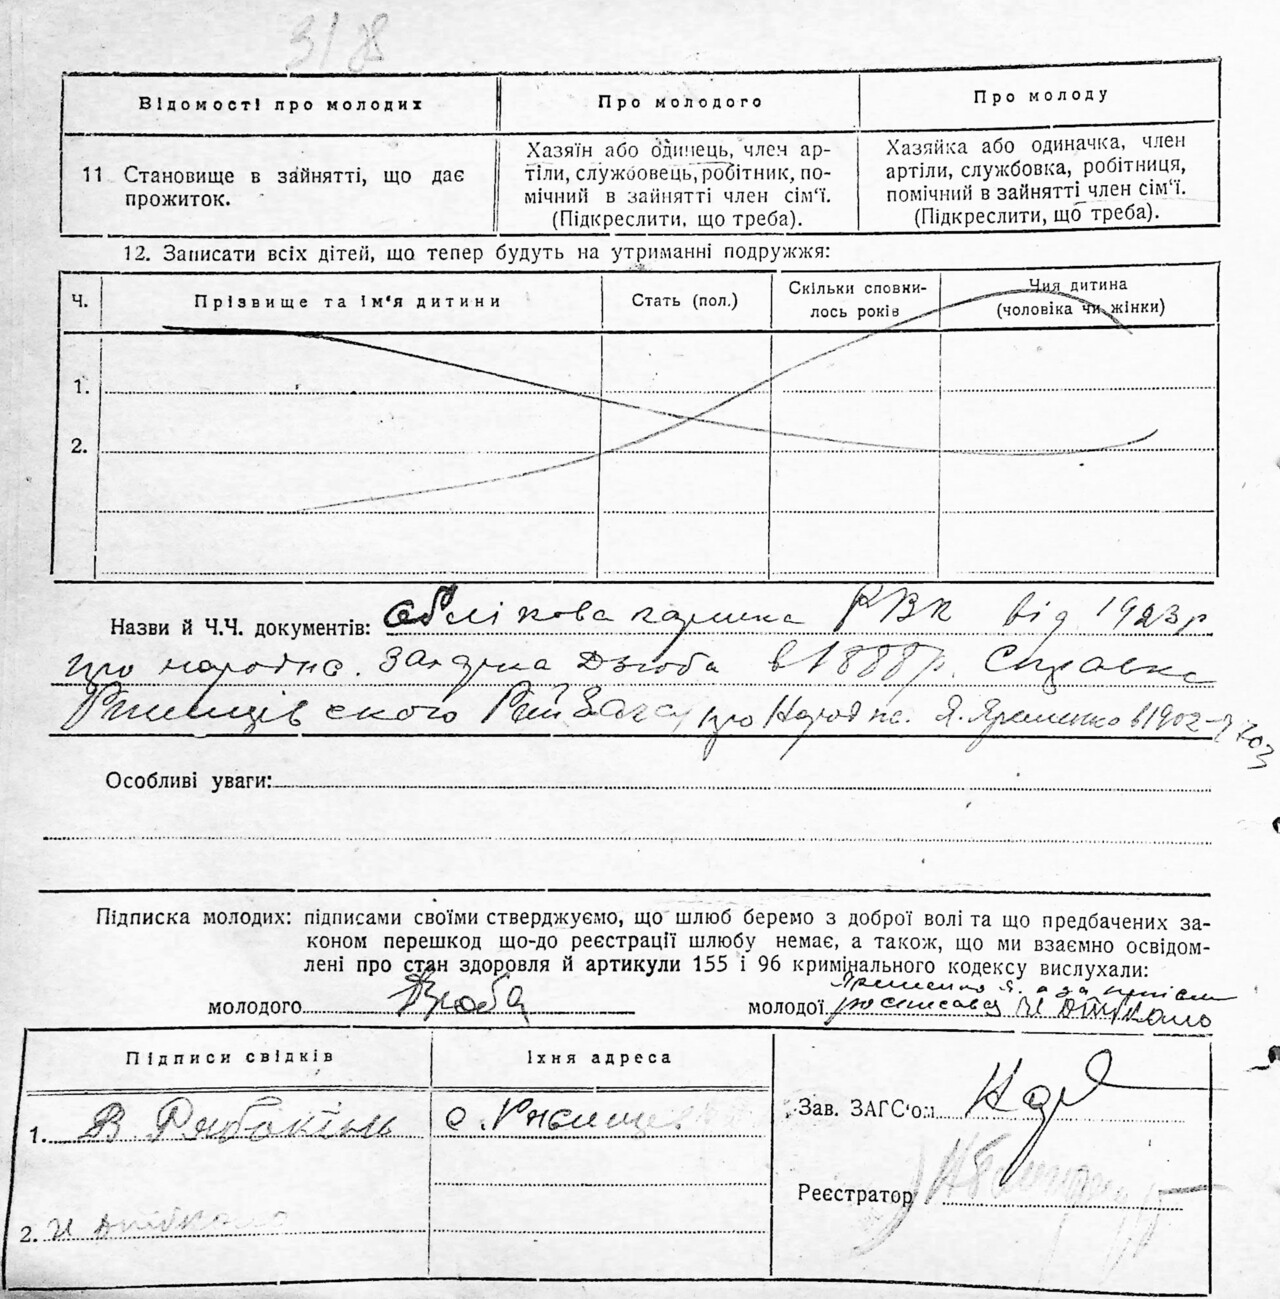 Відомості про молодих
Про молодого
Про молоду
11 Становище в зайнятті, що дає
прожиток.
Хазяїн або одинець, член ар-
тіли, службовець, робітник, по-
мічний в зайнятті член сім'ї.
(Підкреслити, що треба).
Хазяйка або одиначка, член
артіли, службовка, робітниця,
помічний в зайнятті член сім'ї.
(Підкреслити, що треба).
12. Записати всіх дітей, що тепер будуть на утриманні подружжя:
Ч.
Прізвище та ім'я дитини
Стать (пол.)
Скільки сповни-
лось років
Чия дитина
(чоловіка чи жінки)
1.
2.
Назви й Ч.Ч. документів: Облікова картка РВК від 1923 р
про народж. Дзюба в 1888 р. Справка
Ржищівського про народж. Я. Яременко в 1902
Особливі уваги:
Підписка молодих: підписами своїми стверджуємо, що шлюб беремо з доброї волі та що предбачених за-
коном перешкод що-до реєстрації шлюбу немає, а також, що ми взаємно освідом-
лені про стан здоров'я й артикули 155 і 96 кримінального кодексу вислухали:
молодого Дзюба
молодої Яременко Я. а за
Підписи свідків
Їхня адреса
1. В.
с. Ржищев
2.
Зав. ЗАГС'ом
Реєстратор